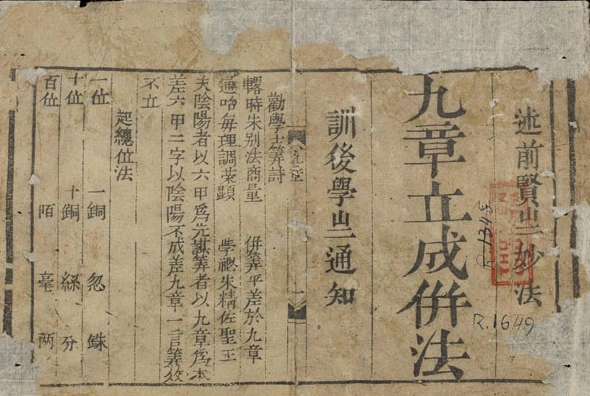 述前賢㞢妙法
R.1345
R.1649
九章立成併法
訓後學㞢通知
勸學士筭詩
時朱別法商量 併筭平差於九章
通咍每理調荣顕 學祕朱精佐聖王
夫陰陽者以六甲爲先謀筭者以九章爲本
差六甲二字以陰陽不成差九章一言筭效
不立
起總位法
一位 一銅 忽 銖
十位 十銅 絲 分
百位 陌 毫 両